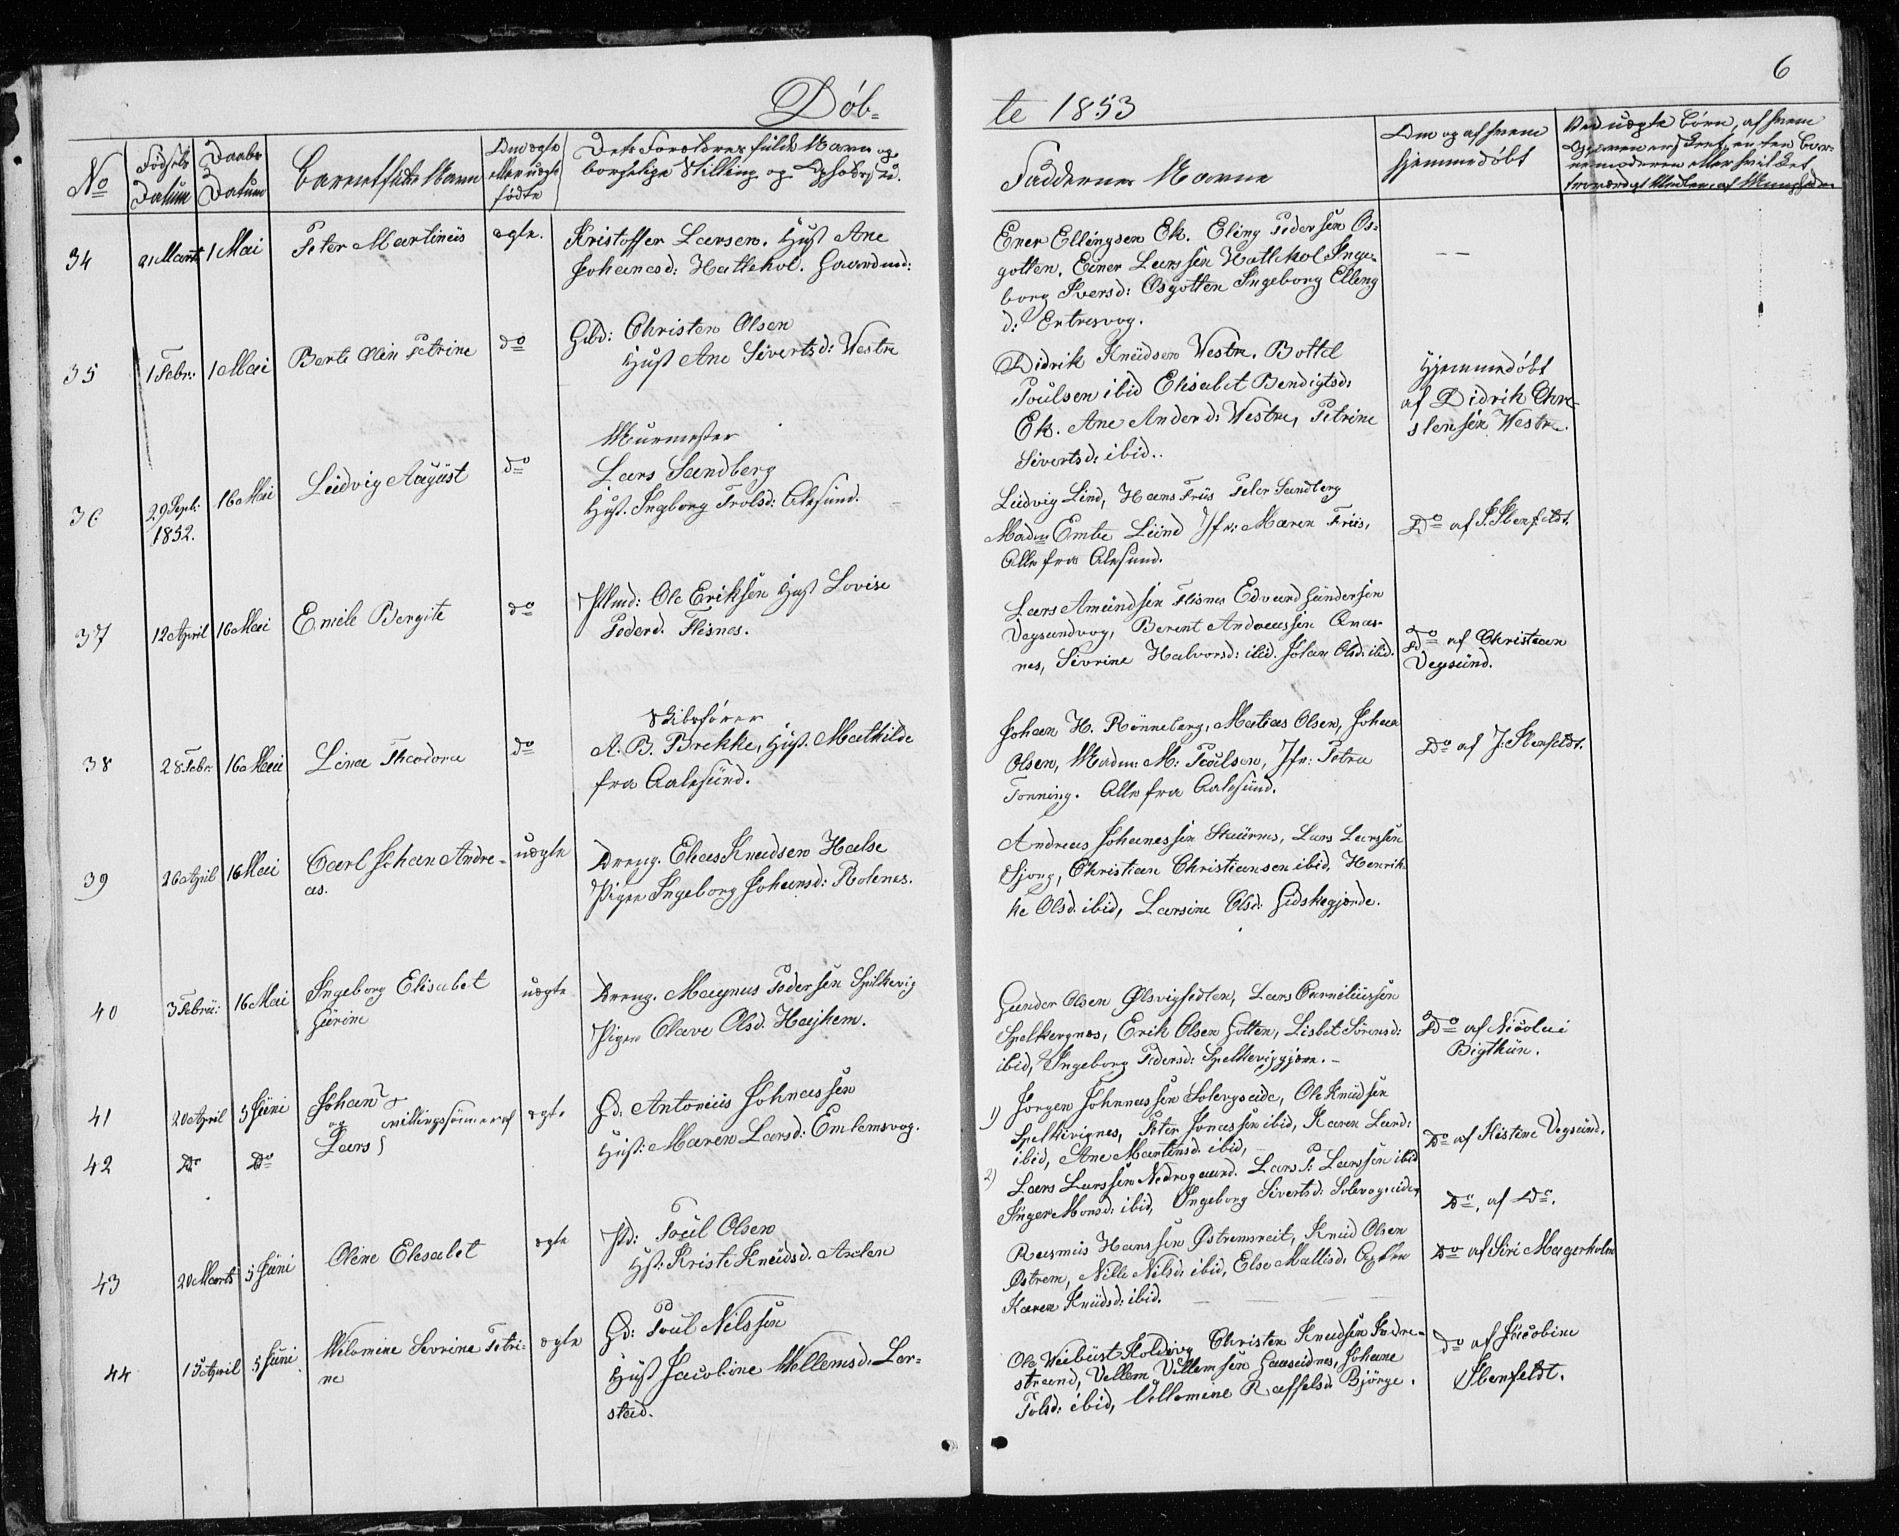 6
Döb-
te 1853
No
Födsels
Datum
Daabs
Datum
Barnets fulde Navn
Om ægte
eller uægte
födte
Dets Forældres fulde Navn og
borgelige Stilling og Opholdssted.
Faddernes Navne
Om og af hvem
hjemmedöbt
Ved uægte Börn, af hvem
34
21 Marts
1 Mai
Peter Martinüs
ægte.
Kristoffer Larsen. Hust Ane
Johanesd: Hatlehol. Gaardmd:
Ener Ellingsen Ek. Eling Pedersen Os-
gotten, Einer Larssen Hatlehol Inge-
borg Iversd: Osgotten Ingeborg Elling
d: Entresvog.
— —
35
1 Febr:
1 Mai
Berte Olin Petrine
do
Gbd: Christen Olsen
Hust Ane Sivertsd: Westre
Didrik Knüdsen Westre. Bottel
Poulsen ibid Elisabet Bendigtsd:
Ek. Ane Anderd: Westre, Petrine
Sivertsd: ibid..
Hjemmedöbt
af Didrik Chri-
stensen Westre.
36
29 Sept:
1852.
16 Mai
Lüdvig Aagüst
do
Murmester
Lars Sandberg
Hust. Ingborg Trolsd: Alesund.
Lüdvig Lind, Hans Friis Peter Sandberg
Madm Embe Lünd Jfr: Maren Friis,
Alle fra Alesund.
Do af P. Stenfeldt.
37
12 April
16 Mai
Emile Bergite
do
Plmd: Ole Eriksen Hust Lovise
Pederd. Flisnes.
Lars Amündsen Flisnes Edvard Gündersen
Vegsundvog, Berent Andreassen Qvas-
nes, Sivrine Halvorsd: ibid. Johan Olsd: ibid.
Do af Christian
Vegsünd.
38
28 Febr:
16 Mai
Lina Theodora
do
Skibsförer
A. B. Brekke, Hust. Mathilde
fra Aalesünd.
Johan H. Rönneberg, Matias Olsen, Johan
Olsen, Madm: M: Poülsen, Jfr: Petra
Tonning. Alle fra Aalesünd.
Do af J: Stenfeldt.
39
26 April
16 Mai
Carl Johan Andre-
as.
uægte
Dreng. Elias Knudsen Halse
Pigen Ingeborg Johansd: Rotenes.
Andreas Johanessen Staürnes, Lars Larssen
Sjong, Christian Christiansen ibid, Henrik-
ke Olsd. ibid, Larsine Olsd: Gidskegjerde.
40
3 Febrü:
16 Mai
Ingeborg Elisabet
Gürine
uægte
Dreng. Magnus Pedersen Spilkevig
Pigen Olave Olsd. Hajhem.
Gunder Olsen Ølsvigsedlen, Lars Corneliüssen
Spelkevgnes, Erik Olsen Gotten, Lisbet Sörensd:
ibid, Ingeborg Pedersd: Spelkeviggjern. –
Do af Nicolai
Bigthün.
41
20 April
5 Jüni
Johan
og
Lars
Tvillingssönner af
ægte
Gd. Antoniüs Johnassen
Hust: Maren Larsd: Emlemsvog.
1) Jörgen Johnnassen Solevogseide, Ole Knüdsen
Spelkevignes, Peter Jonassen ibid, Karen Lard:
ibid, Ane Martinsd. ibid,
Do af Kistine Vegsünd.
42
Do
Do
2) Lars Larssen Nedregaard. Lars P: Larssen ibid
Inger Monsd: ibid, Ingeborg Sivertsd: Solevogseidet
Do. af Do.
43
20 Marts
5 Jüni
Oline Elesabet
ægte
Pd: Poül Olsen
Hst: Kriste Knüdsd. Anlen
Rasmüs Hanssen Østremsreit, Knüd Olsen
Østrem, Nille Nilsd: ibid, Else Mattisd.
Karen Knüdsd: ibid.
Do af Siri Magerholm
44
15 April
5 Jüni
Wilomine Sevrine Petri-
ne
ægte
Gd: Poül Nilssen
Hust Jacobine Wellemsd. Lor-
stad.
Ole Weibüst Holdevog Christen Knudsen Indre-
strand, Vellem Villemsen Gaaseidnes, Johane
Tolsd: ibid, Vellomine Raffelsd: Björge.
Do af Jücobine
Stenfeldt.